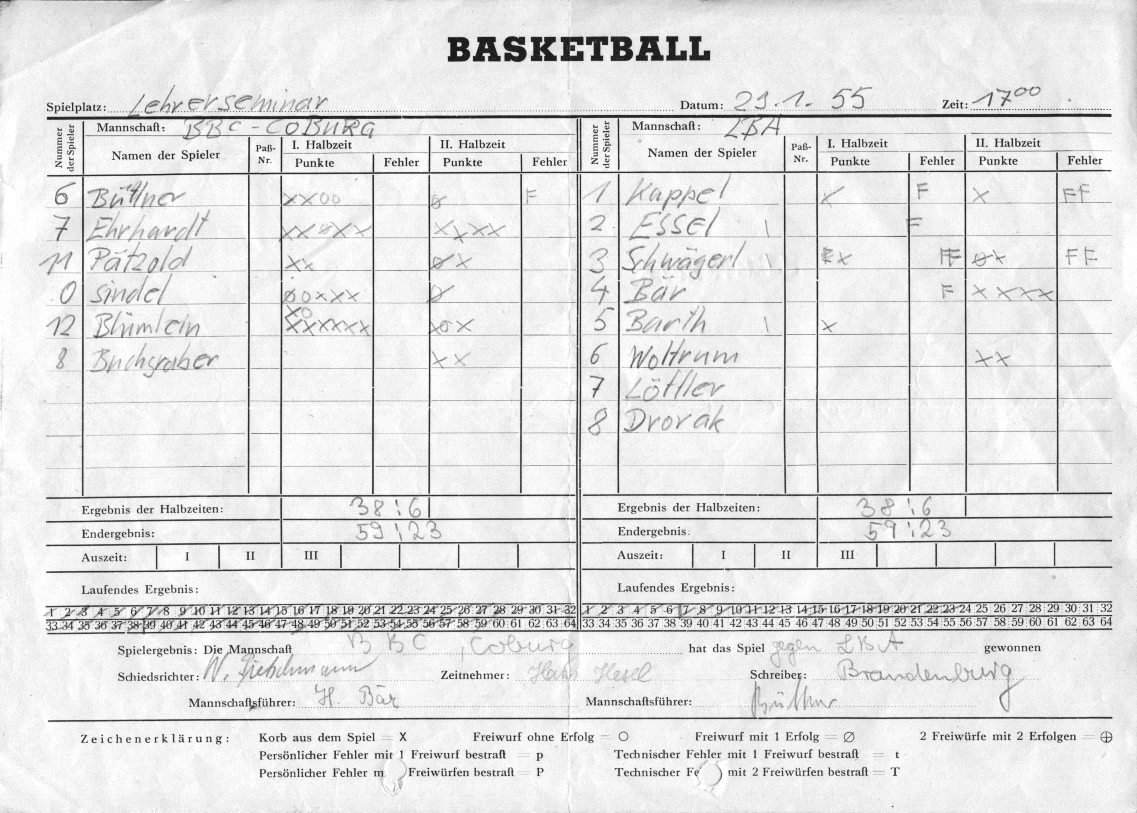 BASKETBALL
Spielplatz: Lehrerseminar Datum: 29.1.55 Zeit: 17 00
Nummer der Spieler Mannschaft: BBC-Coburg Nummer der Spieler Mannschaft: LBA
Namen der Spieler Paß-Nr. I. Halbzeit II. Halbzeit Namen der Spieler Paß-Nr. I. Halbzeit II. Halbzeit
Punkte Fehler Punkte Fehler Punkte Fehler Punkte Fehler
6 Büttner XXOO Ø F 1 Kappel X F X FF
7 Ehrhardt XXØXX XXXX 2 ESSEL | F
11 Pätzold XX ØX 3 Schwägerl | X FF ØX FF
0 Sindel ØOXXX Ø 4 Bär F XXXX
XO
12 Blümlein XXXXXX XOX 5 Barth | X
8 Buchgraber XX 6 Woltrum XX
7 Löffler
8 Dvorak
Ergebnis der Halbzeiten: 38:6 Ergebnis der Halbzeiten: 38:6
Endergebnis: 59:23 Endergebnis. 59:23
Auszeit: I II III Auszeit: I II III
Laufendes Ergebnis: Laufendes Ergebnis:
1 2 3 4 5 6 7 8 9 10 11 12 13 14 15 16 17 18 19 20 21 22 23 24 25 26 27 28 29 30 31 32 1 2 3 4 5 6 7 8 9 10 11 12 13 14 15 16 17 18 19 20 21 22 23 24 25 26 27 28 29 30 31 32
33 34 35 36 37 38 39 40 41 42 43 44 45 46 47 48 49 50 51 52 53 54 55 56 57 58 59 60 61 62 63 64 33 34 35 36 37 38 39 40 41 42 43 44 45 46 47 48 49 50 51 52 53 54 55 56 57 58 59 60 61 62 63 64
Spielergebnis: Die Mannschaft BBC, Coburg hat das Spiel gegen LBA gewonnen
Schiedsrichter: W. Zeitnehmer: Hans Schreiber: Brandenburg
Mannschaftsführer: H. Bär Mannschaftsführer: Büttner
Zeichenerklärung: Korb aus dem Spiel = X Freiwurf ohne Erfolg = O Freiwurf mit 1 Erfolg = Ø 2 Freiwürfe mit 2 Erfolgen = ⊕
Persönlicher Fehler mit 1 Freiwurf bestraft = p Technischer Fehler mit 1 Freiwurf bestraft = t
Persönlicher Fehler m Freiwürfen bestraft = P Technischer Fe mit 2 Freiwürfen bestraft = T